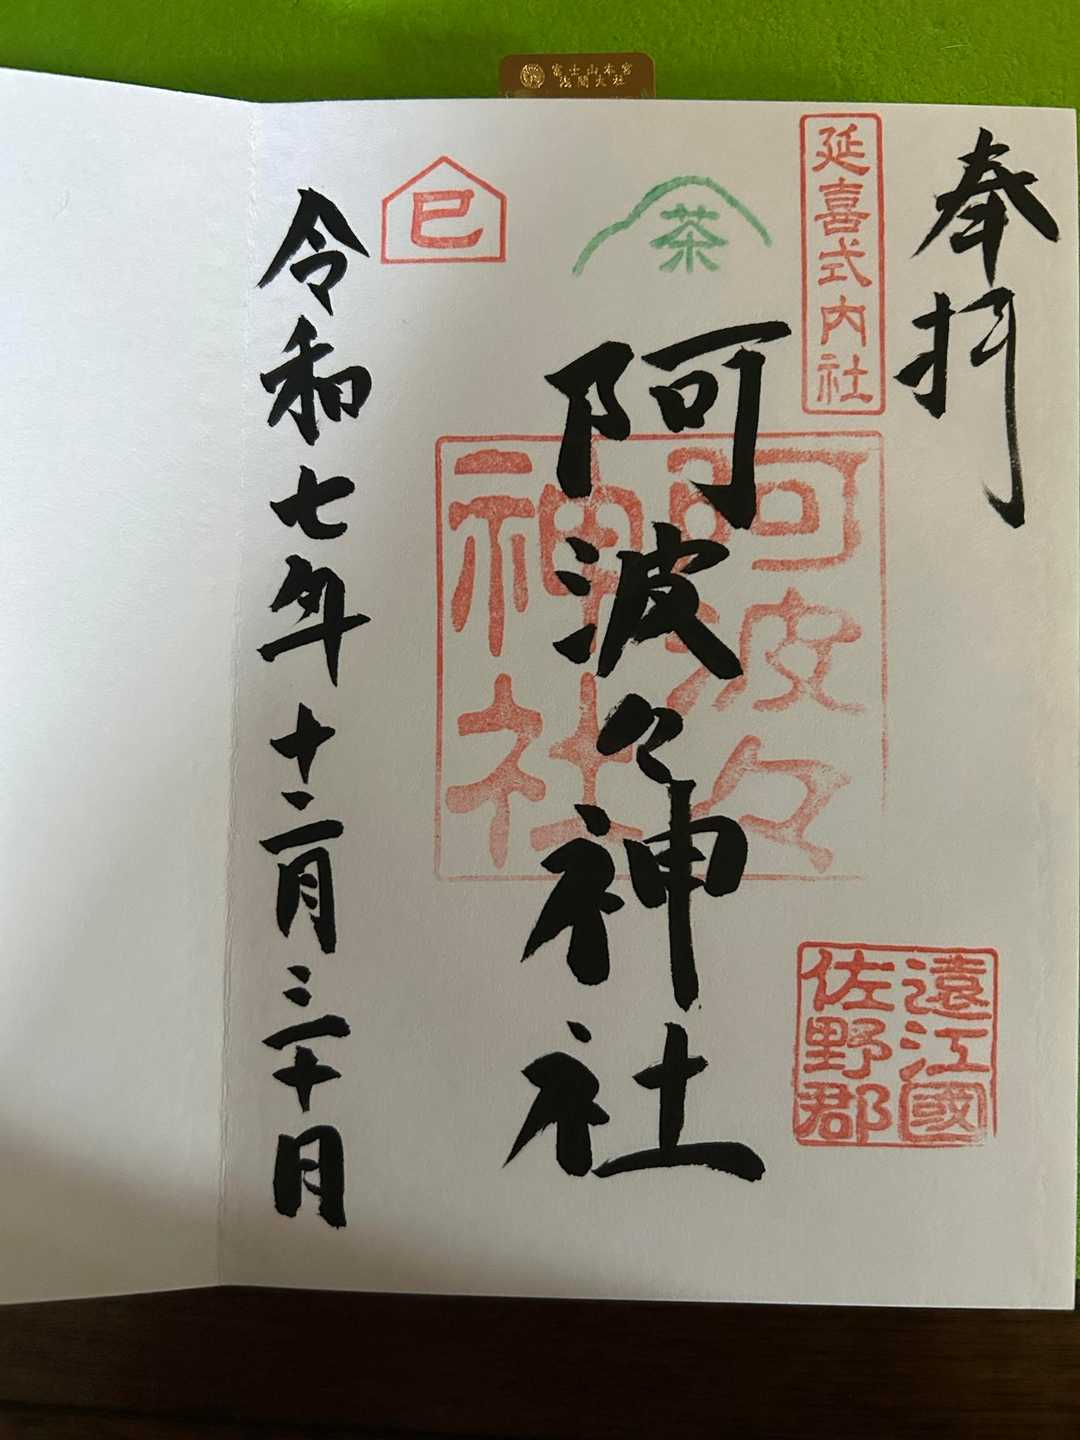 富士山本宮
浅間大社
奉拝
延喜式内社
遠江國
佐野郡
茶
阿波々神社
阿波々
神社
巳
令和七年十二月三十日